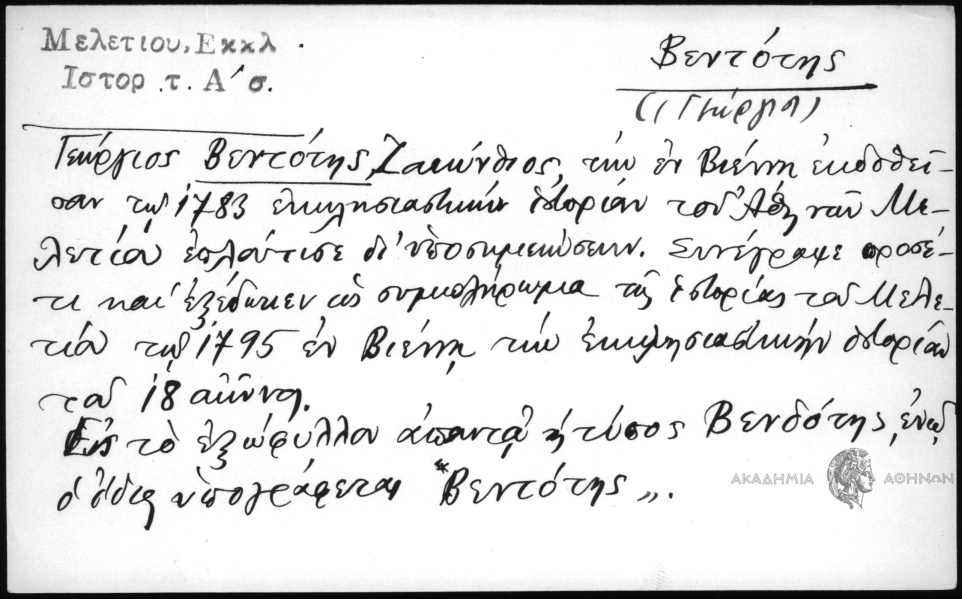 Μελετιου, Εκκλ.
Ιστορ. τ. Α' σ.
Βεντότης
(Γεώργιος)
Γεώργιος Βεντότης, Ζακύνθιος, τὴν ἐν Βιέννῃ ἐκδοθεῖ-
σαν τῷ 1783 ἐκκλησιαστικὴν ἱστορίαν τοῦ Ἀθηνῶν Με-
λετίου ἐπλούτισε δι' ὑποσημειώσεων. Συνέγραψε προσέ-
τι καὶ ἐξέδωκεν ὡς συμπλήρωμα τῆς ἱστορίας τοῦ Μελε-
τίου τῷ 1795 ἐν Βιέννῃ τὴν ἐκκλησιαστικὴν ἱστορίαν
τοῦ 18 αἰῶνος.
Εἰς τὸ ἐξώφυλλον ἀπαντᾷ ὁ τύπος Βενδότης, ἐνῷ
ὁ ἴδιος ὑπογράφεται "Βεντότης".
ΑΚΑΔΗΜΙΑ ΑΘΗΝΩΝ